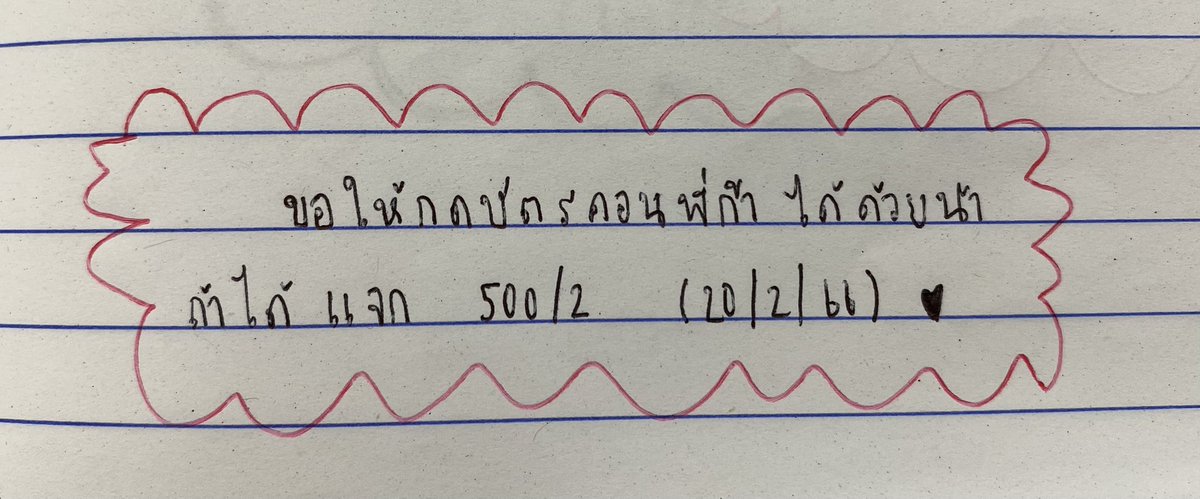 ขอให้กดบัตรคอนพี่ก้า ได้ด้วยน้า
ถ้าได้ แจก 500/2 (20/2/66) ♥